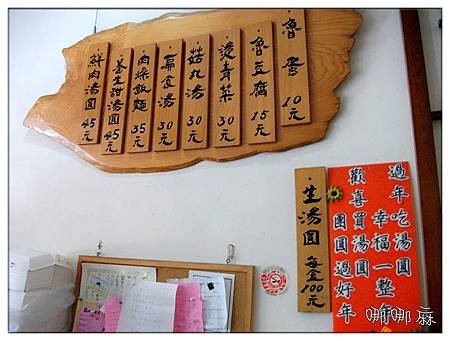 魯蛋 10元
魯豆腐 15元
燙青菜 30元
菇丸湯 30元
扁食湯 30元
肉燥飯麵 35元
養生甜湯圓 45元
鮮肉湯圓 45元
生湯圓 每盒100元
過年吃湯圓
幸福一整年
歡喜買湯圓
團圓過好年
娜娜麻